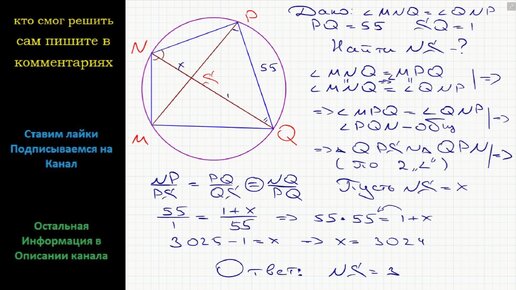 кто смог решить
сам пишите в
комментариях
Ставим лайки
Подписываемся на
Канал
Остальная
Информация в
Описании канала
N
P
M
Q
S
x
1
55
Дано: ∠MNQ = ∠QNP
PQ = 55 SQ = 1
Найти NS - ?
∠MNQ = ∠MPQ
∠MNQ = ∠QNP |=>
=> ∠MPQ = ∠QNP
∠PQN - общ |=>
=> △QPS ~ △QPN
(по 2 "∠")
NP/PS = PQ/QS = NQ/PQ Пусть NS = x
55/1 = 1+x/55 => 55·55 = 1+x
3025 - 1 = x => x = 3024
Ответ: NS = 3